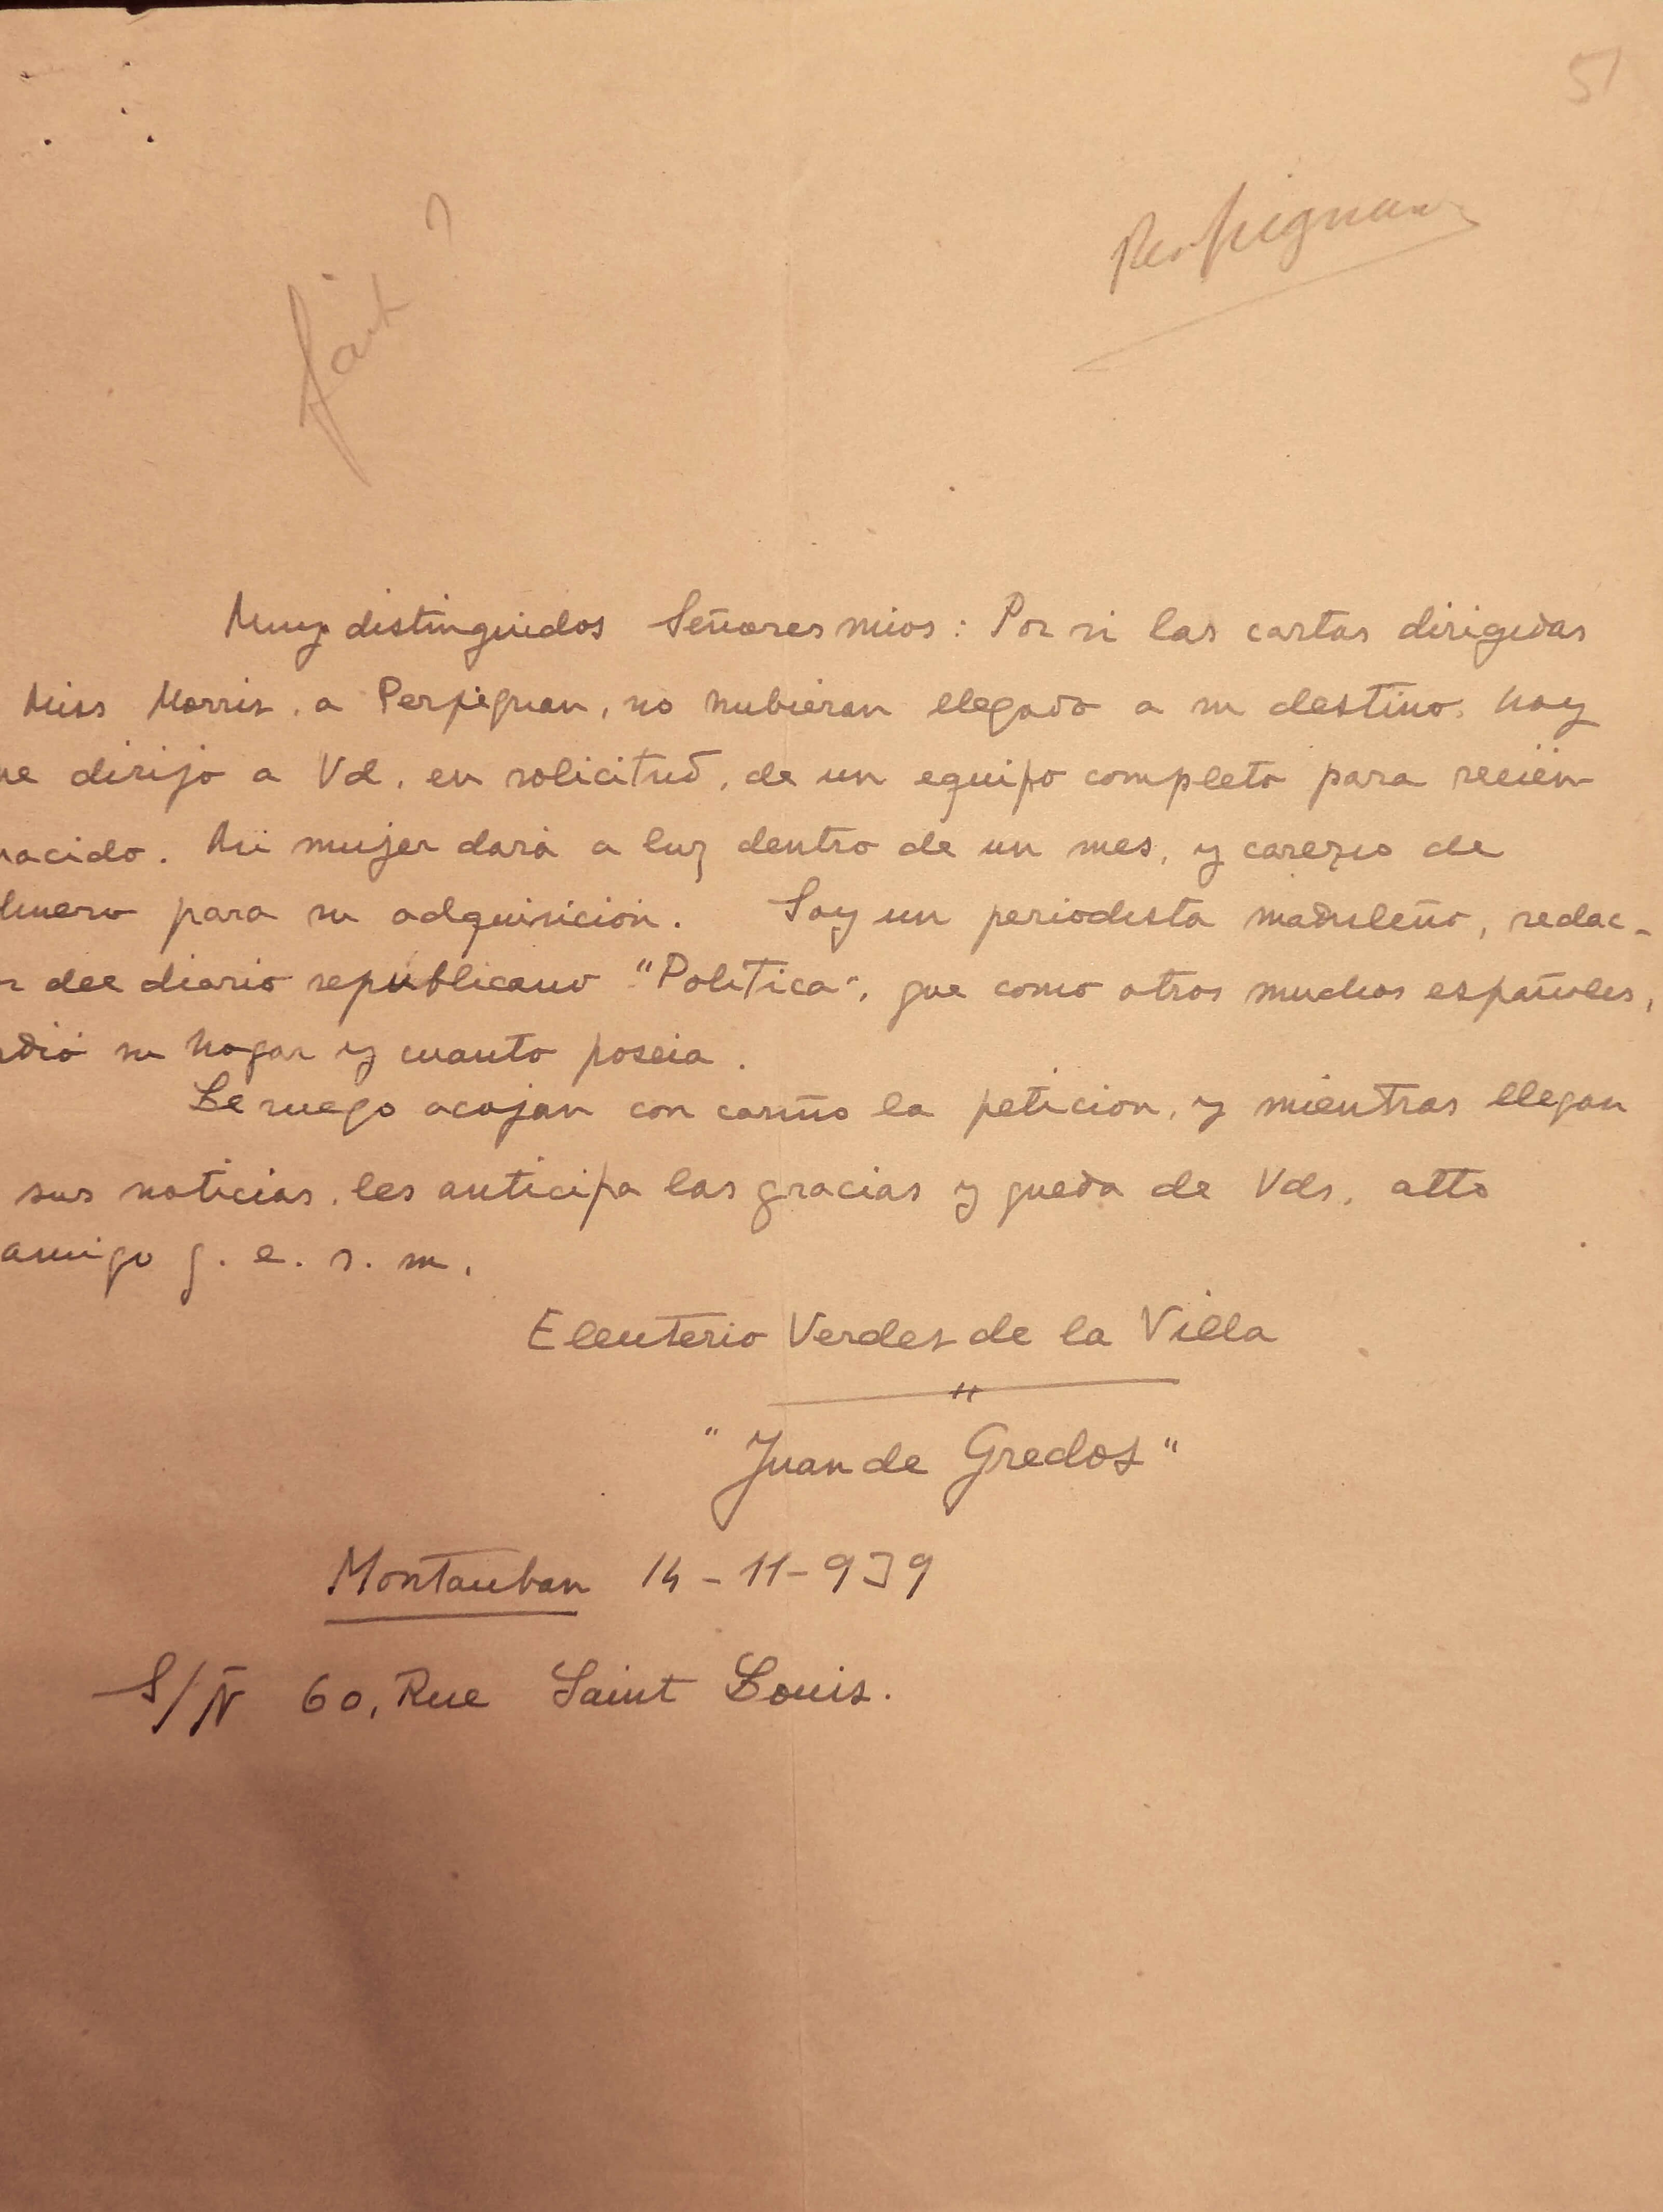 51
Perpignan
fait ?
Muy distinguidos Señores mios: Por si las cartas dirigidas
Miss Morris, a Perpignan, no hubieran llegado a su destino, hoy
me dirijo a Vd. en solicitud, de un equipo completo para recién
nacido. Mi mujer dará a luz dentro de un mes, y carezco de
dinero para su adquisición. Soy un periodista madrileño, redac-
r del diario republicano "Politica", que como otros muchos españoles,
rdió su hogar y cuanto poseia.
Le ruego acojan con cariño la peticion, y mientras llegan
sus noticias, les anticipa las gracias y queda de Vds. atto
amigo q. e. s. m.
Eleuterio Verdes de la Villa
"
"Juan de Gredos"
Montauban 14-11-939
S/N 60, Rue Saint Louis.